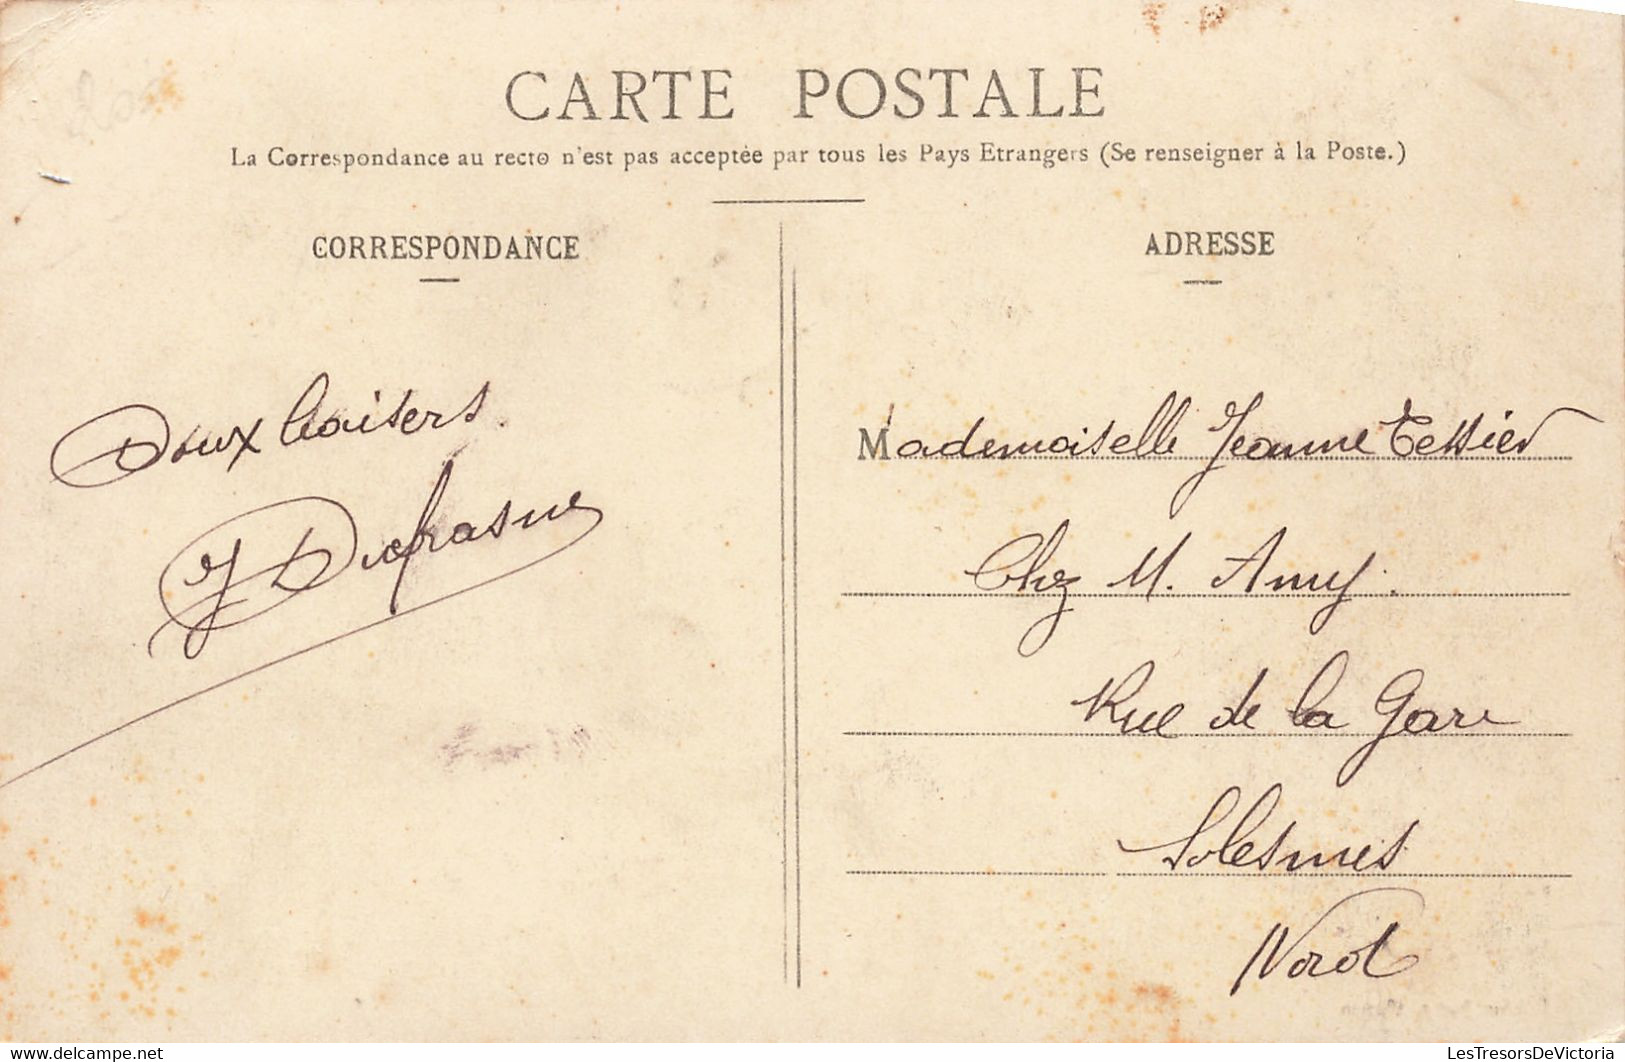 CARTE POSTALE
La Correspondance au recto n'est pas acceptée par tous les Pays Etrangers (Se renseigner à la Poste.)
CORRESPONDANCE
Doux baisers.
J Dufrasne
ADRESSE
Mademoiselle Jeanne Tessier
Chez M. Amy.
Rue de la Gare
Solesmes
Nord
delcampe.net
LesTresorsDeVictoria